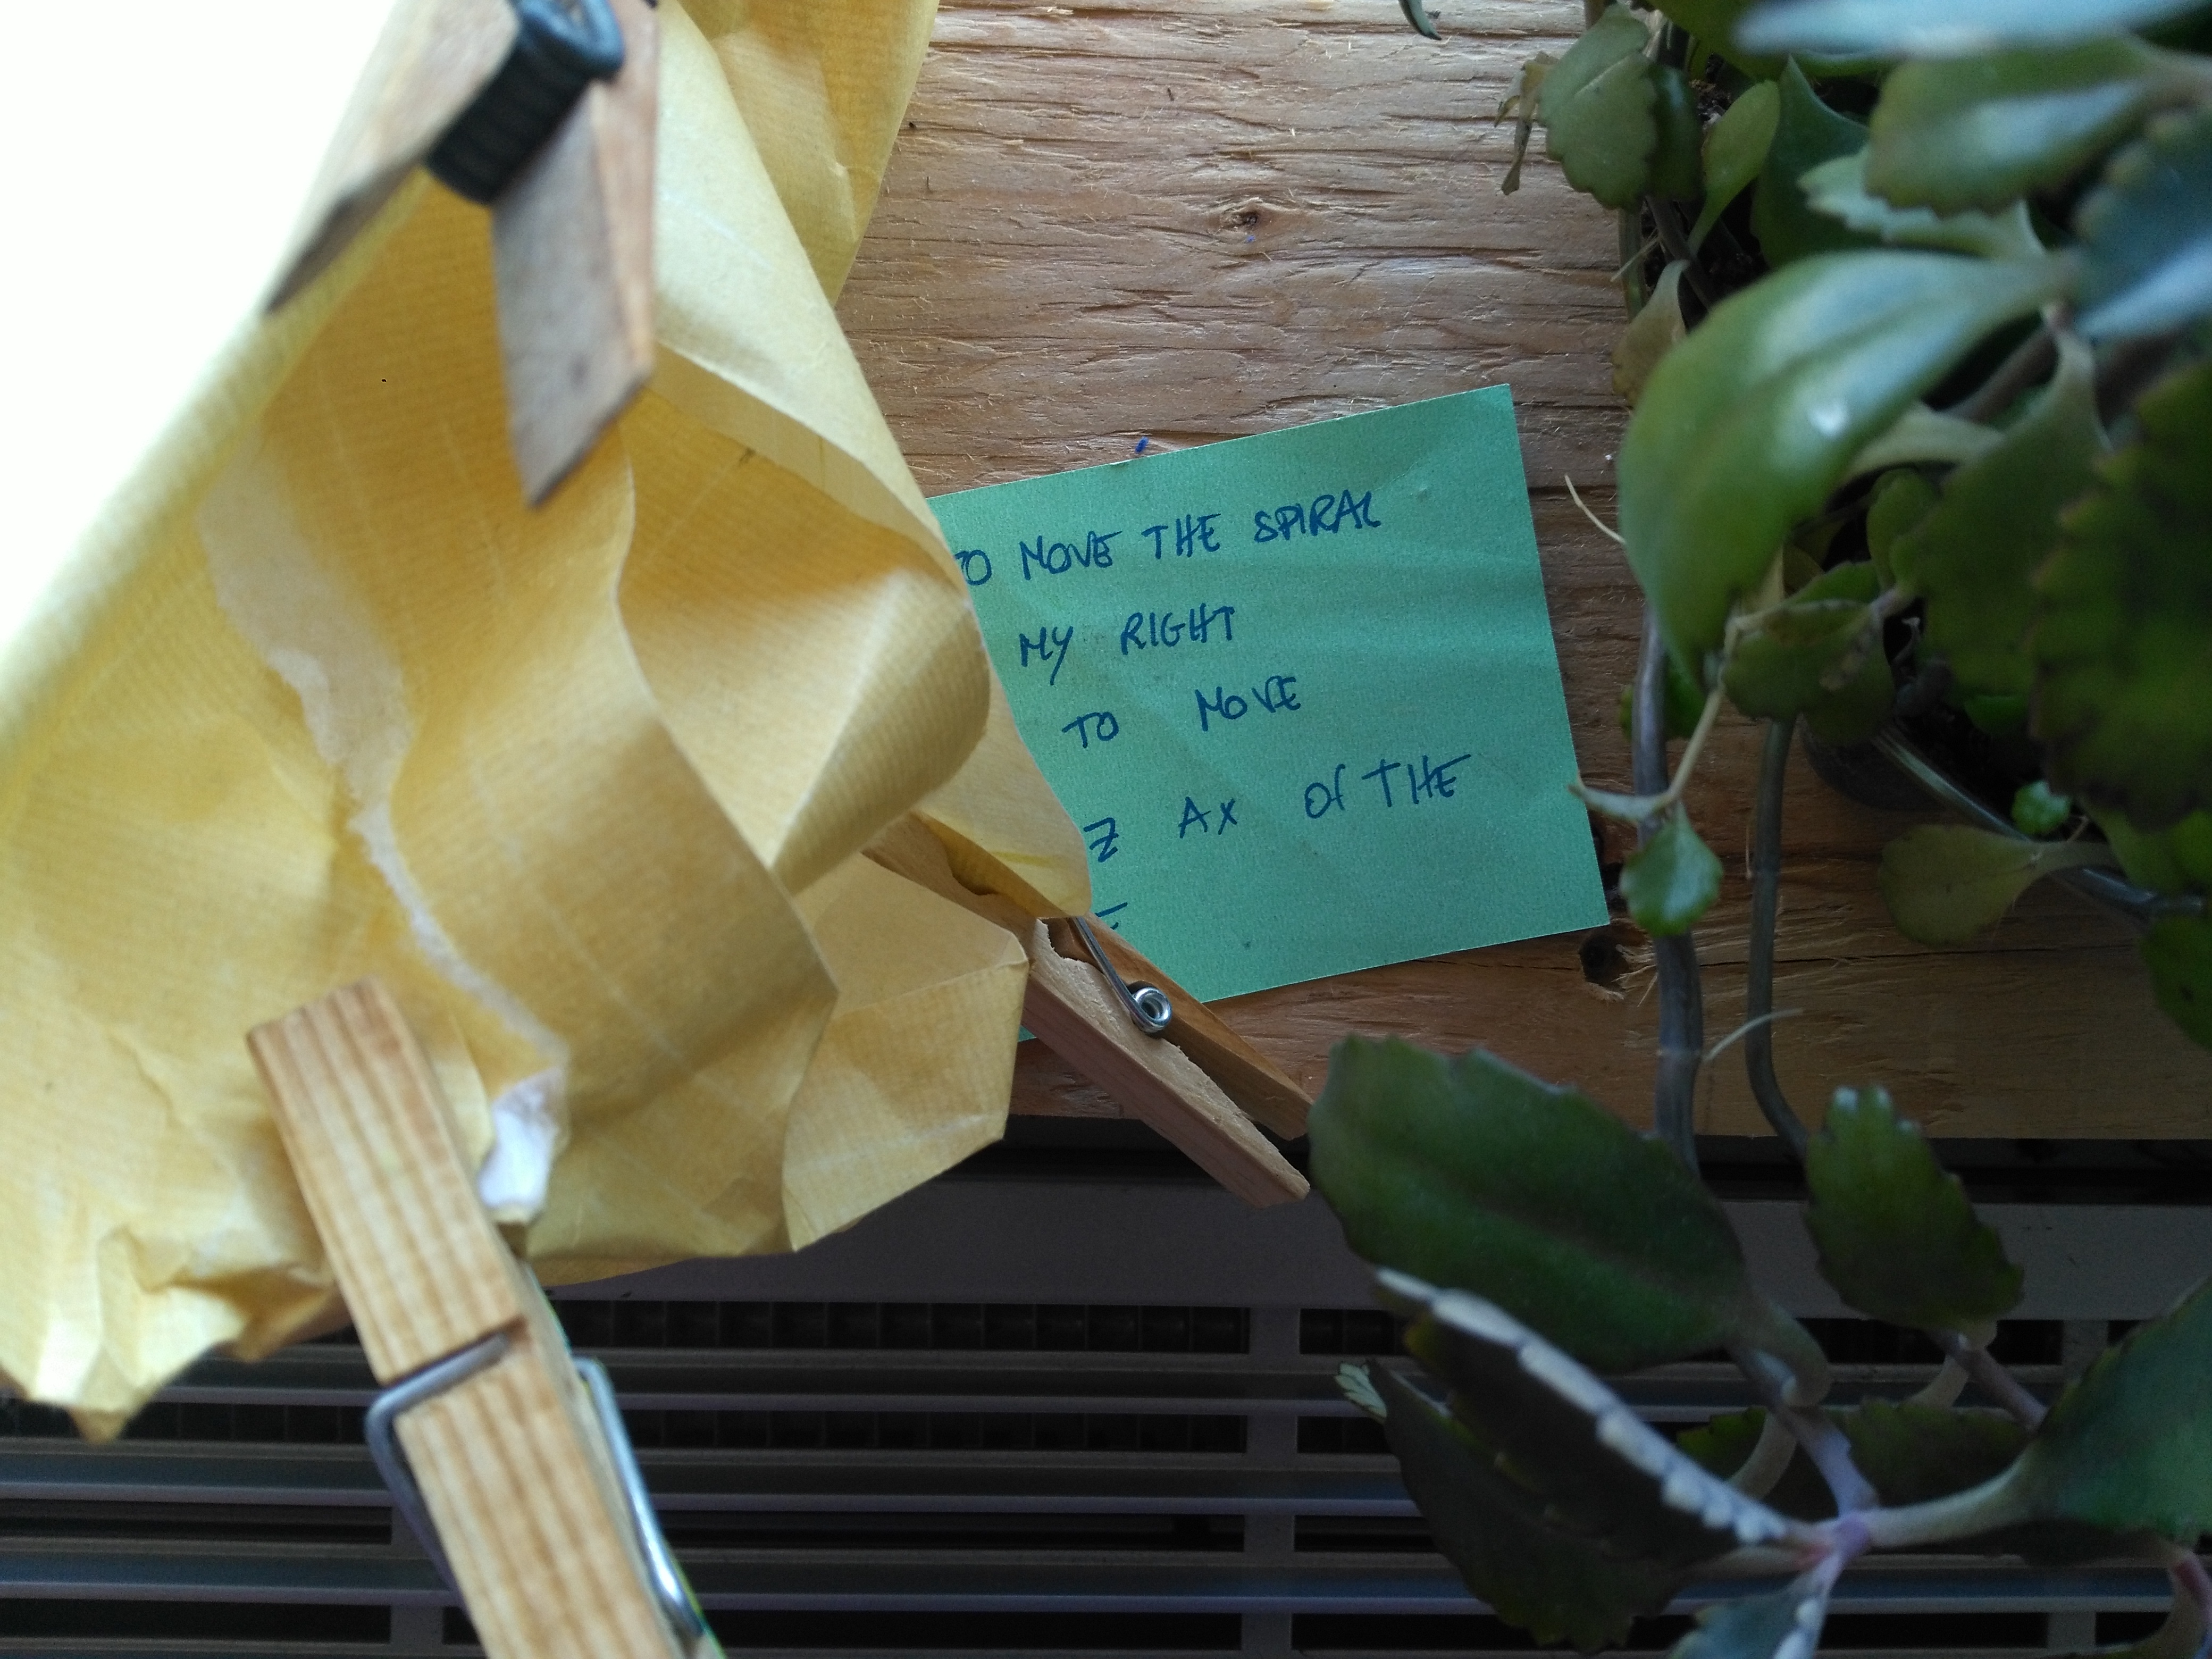 TO MOVE THE SPIRAL
MY RIGHT
TO MOVE
Z AX OF THE